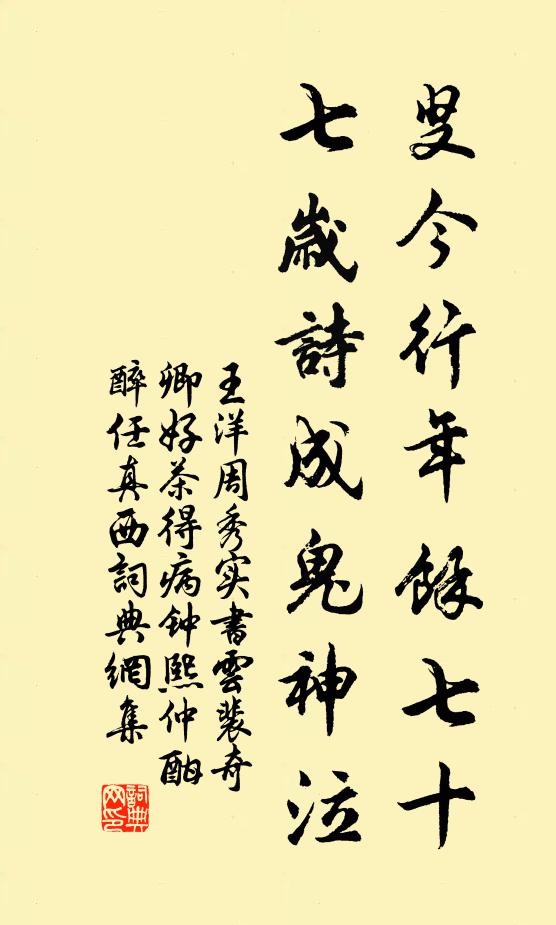 叟今行年餘七十
七歲詩成鬼神泣
王洋周秀实書雲裴奇
卿好茶得病钟熙仲酣
醉任真西詞典網集
詞典
网印